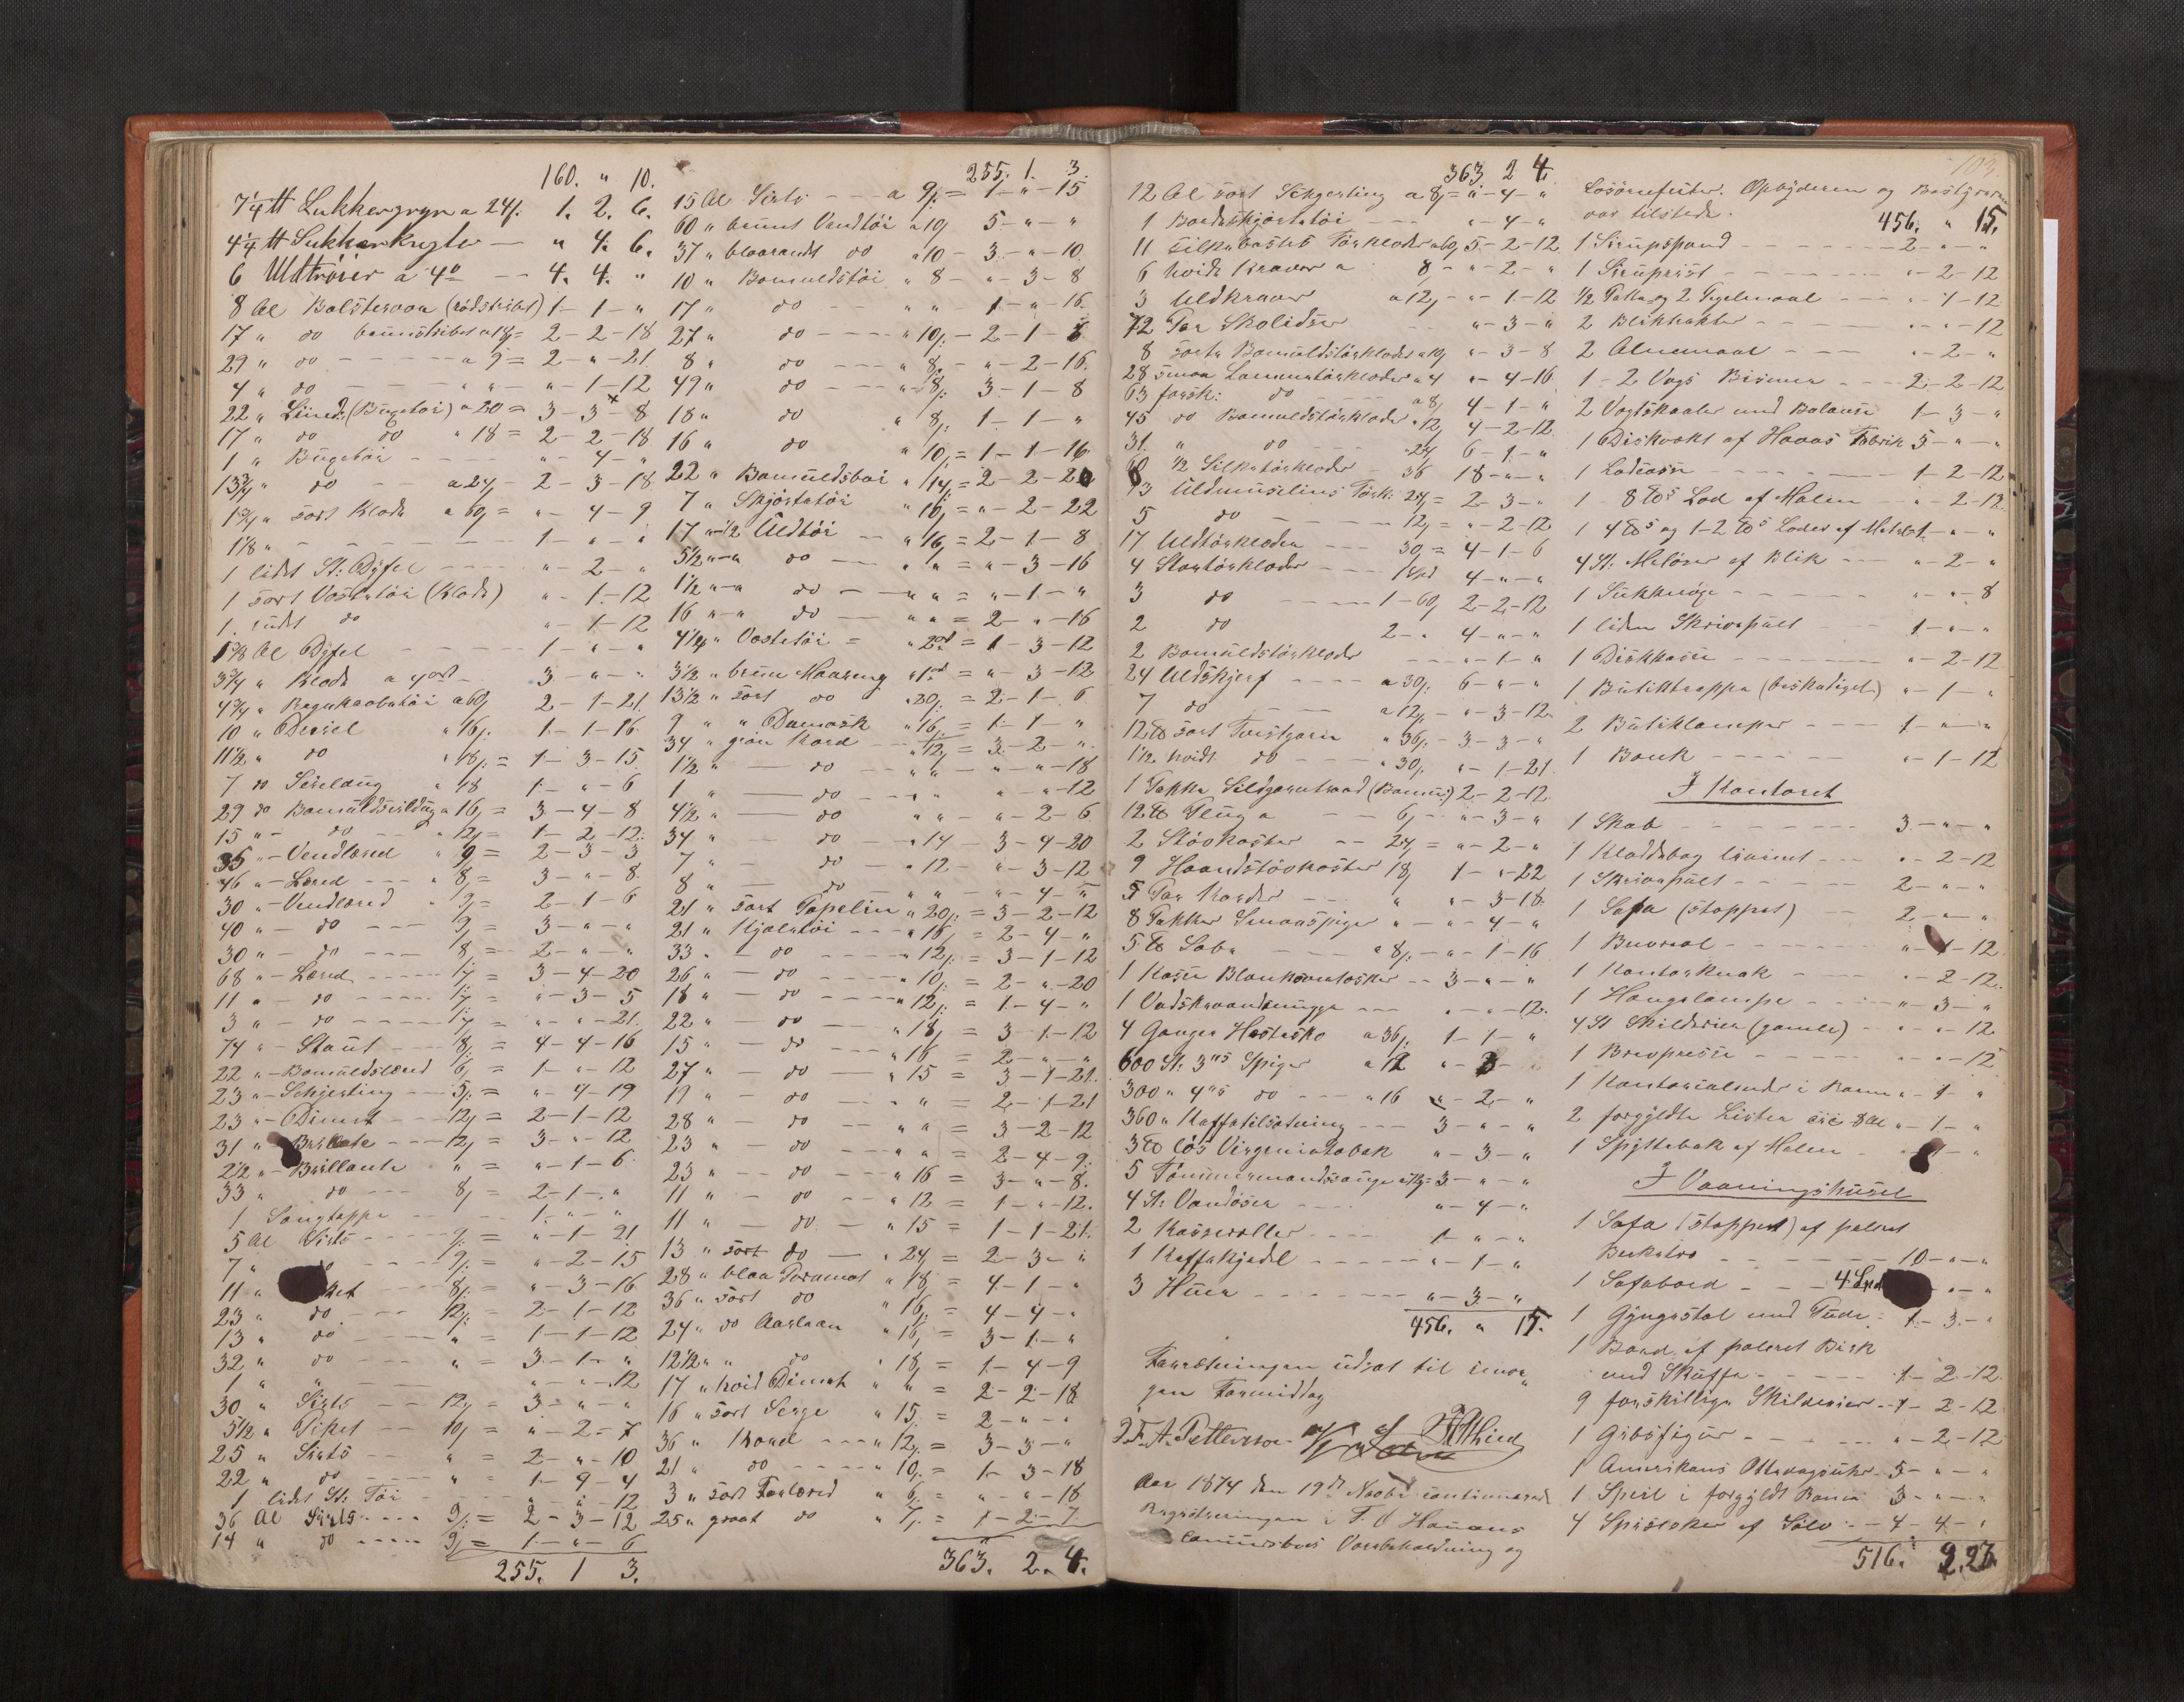 160. " 10.
7¼ ℔ Sukkergryn a 24 ß. 1. 2. 6.
4¼ ℔ Sukkerkugler — " 4. 6.
6 Uldtrøier a 4 — 4. 4. "
8 Al Bolstervar (rødstribet) 1 - 1 - "
17 " do brunstribet a 18 ß = 2 - 2 - 18
29 " do - - - a 9 = 2 - " - 21
4 " do - - - " - 1 - 12
22 " Lirred: (Bugetøi) a 20 = 3 - 3 - 8
17 " do do " 18 = 2 - 2 - 18
1 " Bugetøi " - 4 - "
13¾ " do a 24 - 2 - 3 - 18
1¾ " sort Klæde a 60 = " - 4 - 9
1⅛ " - - - 1 - " - "
1 lidet St: Dyfel " - 2 - "
1 sort Vestetøi (Klæde) " - 1 - 12
1 do " - 1 - 12
1⅜ Al Dyfel 1 - " - "
3¾ " Klæde a 4 ort - 3 - " - "
4¾ " Regnkaabetøi a 60 2 - 1 - 21
10 " " 16 ß. 1 - 1 - 16
11½ " do " 18 ß. = 1 - 3 - 15
7 do Seildug " 18 1 - " - 6
29 do Bomuldsseildug a 16 = 3 - 4 - 8
15 " do " 12 = 1 - 2 - 12
35 " Vendlærred " 9 = 2 - 3 - 3
46 " Lærred " 8 = 3 - " - 8
30 " Vendlærred " 9 = 2 - 1 - 6
40 " do 9 = 3 - " - "
30 " do 8 = 2 - " - "
68 " Lærred 7 = 3 - 4 - 20
11 " do 7 = " - 3 - 5
3 " do 7 = " - " - 21
74 " Staut 8 = 4 - 4 - 16
22 " Bomuldslærred 6 = 1 - " - 12
23 " Schjerting 5 ß. = " - 4 - 19
23 " Dimet 12 = 2 - 1 - 12
31 " 12 = 3 - " - 12
2½ " Brillante " = " - 1 - 6
33 " do 8 = 2 - 1 - "
1 Sengteppe 1 - " - "
5 Al Sirts 9 = " - 1 - 21
7 " 9 ß. = " - 2 - 15
11 " 8 ß. = " - 3 - 16
23 " do 12 ß. = 2 - 1 - 12
13 " do " = 1 - 1 - 12
32 " do " = 3 - 1 - "
1 " " " - " - 12
30 " Sirts 12 = 3 - " - "
5½ " Piket 10 = " - 2 - 7
25 " Sirts " = 2 - " - 10
22 " do " 1 - 9 - 4
1 lidet St: Tøi " - " - 12
36 Al Sirts 9 ß. = 2 - 3 - 12
14 " do 9 = 1 - " - 6
255. 1 3.
255. 1. 3.
15 Al Sirts a 9 ß. = 1 - " - 15
60 " brunt Vendtøi a 10 5 - " - "
37 " blaarandt do " 10 - 3 - " - 10
10 " Bomuldstøi " 8 - " - 3 - 8
17 " do " " 1 - " - 16
27 " do " 10 ß. - 2 - 1 - 6
8 " do " 8 - " - 2 - 16
49 " do " 8 ß. 3 - 1 - 8
18 " do " 8 ß. 1 - 1 - "
16 " do " 10 ß. = 1 - 1 - 16
22 " Bomuldsboi " 14 = 2 - 2 - 20
7 " Skjørtetøi " 16 = " - 2 - 22
17 " ½ Uldtøi " 16 = 2 - 1 - 8
5½ " " do " " = " - 3 - 16
1½ " " do " " = " - 1 - "
16 " " do " " = 2 - " - 16
4¼ " Vestetøi = " 2 ort = 1 - 3 - 12
3½ " brun Moaring " 1 ort = " - 3 - 12
13½ " sort do " 20 ß. = 2 - 1 - 6
9 " " Damask " 16 = 1 - 1 - "
34 " grøn Kord " 12 = 3 - 2 - "
1½ " do " " - " - " - 18
1 " do " " " - " - 12
4½ " do " " - " - 2 - 6
34 " do " 14 3 - 4 - 20
7 " do " 12 - " - 3 - 12
8 " do " " - " - 4 - "
21 " sort Popelin " 20 ß. = 3 - 2 - 12
21 " Kjoletøi " 16 = 2 - 4 - "
33 " do " 12 ß. = 3 - 1 - 12
26 " do " 10 ß. = 2 - " - 20
18 " do " 12 ß. = 1 - 4 - "
22 " do " 18 = 3 - 1 - 12
15 " do " 16 = 2 - " - "
27 " do " 15 = 3 - 1 - 21
19 " do " " = 2 - 1 - 21
28 " do " " = 3 - 2 - 12
23 " do " " = 2 - 4 - 9
23 " do " 16 = 3 - " - 8
11 " do " 12 = 1 - " - 12
11 " do " 15 = 1 - 1 - 21
13 " sort do " 24 = 2 - 3 - "
28 " blaa " 18 = 4 - 1 - "
36 " sort do " 16 ß. = 4 - 4 - "
24 " do " 16 = 3 - 1 - "
12½ " " do " 18 = 1 - 4 - 9
17 " hvid Dimet " " = 2 - 2 - 18
16 " sort Serge " 15 = 2 - " - "
36 " Kord " 12 ß. = 3 - 3 - "
21 " do " 10 ß. = 1 - 3 - 18
3 " sort Forlærred " 6 ß. = " - " - 18
25 " graat do " 7 ß. = 1 - 2 - 7
363. 2. 4.
363 2 4
12 Al sort Schjerting a 8 = " - 4 - "
1 Bordskjørtetøi " - 4 - "
11 Silkebastis Tørklæder a 60 5 - 2 - 12
6 hvide Kraver a 8 - " - 2 - "
3 Uldkraver a 12 - " - 1 - 12
72 Par Skolidser " - 3 - "
8 sorte Bomuldstørklæder a 10 " - 3 - 8
28 smaa Lommetørklæder a 4 " - 4 - 16
63 forsk: do a 8 4 - 1 - "
45 do Bomuldstørklæder " 12 4 - 2 - 12
31. " do " 24 6 - 1 - "
60 ½ Silketørklæder 36 18 - " - "
13 Uldmuselins Tørk: 24 = 2 - 3 - "
5 do 12 = " - 2 - 12
17 Uldtørklæder 30 = 4 - 1 - 6
4 Stortørklæder 1 Spd 4 - " - "
3 do 1 - 60 2 - 2 - 12
2 do 2 - " 4 - " - "
2 Bomuldstørklæder " - 1 - "
24 Uldskjerf a 30 ß. 6 - " - "
7 do a 12 - " - 3 - 12
12 ℔ sort Tvistgarn " 36 ß. - 3 - 3 - "
1½ hvidt do " 30 ß. " - 1 - 21
1 Pakke Sildgarntraad (Bomul.) 2 - 2 - 12
12 ℔ a 6 - " - 3 - "
2 Støvkoster 24 = " - 2 - "
9 Haandstøvkoster 18 1 - " - 22
5 Par Karder " " - 3 - 18
8 Pakker Smaaspiger " - " - 4 - "
5 ℔ Sæbe a 8 ß. - " - 1 - 16
1 Kasse 3 - " - "
1 Vadskevandsmugge " - " - 12
4 Ganger Hestesko a 36 ß. 1 - 1 - "
600 St. 3" Spiger a 12 " - 3 -
300 " 4" do " 16 " - 2 - "
360 " Kaffetilsætning 3 - " - "
3 ℔ løs Virginiatobak " - 3 - "
5 Tømmermandssauge 3 - " - "
4 St. Vandøser " - 4 - "
2 Kasseroller 1 - " - "
1 Kaffekjedel " - 1 - "
3 Huer " - 3 - "
456. " 15.
Forretningen udsat til imor„
gen Formiddag
J. F. A. Petterson
Aar 1874 den 19de Novbr continuerede
Registreringen i F. O
Vare beholdning og
103.
Løsørefecter. Opbyderen og Bestyreren
var tilstede.
456. " 15.
1 Sirupspand 2 - " - "
1 Siruprist " - 2 - 12
½ Potte og 2 Pegelmaal " - 1 - 12
2 Bliktrakter " - " - 12
2 Alnemaal " - 2 - "
1 - 2 Vogs Bismer 2 - 2 - 12
2 Vægtskaaler med Balance 1 - 3 - "
1 Diskvægt af Fabrik 5 - " - "
1 1 - 2 - 12
1 8 ℔s Lod af Malm " - 2 - 12
1 4 ℔s og 1 - 2 ℔s Lodder af Metal 1 - " - "
4 St. Meløser af Blik " - 2 - "
1 " - " - 8
1 liden Skrivepult 1 - " - "
1 Diskkasse " - 2 - 12
1 Butiktrappe (beskadiget) " - 1 - "
2 Butiklamper 1 - " - "
1 Bænk " - 1 - 12
I Kontoret
1 Skab 3 - " - "
1 Kladdebog " - 2 - 12
1 Skrivepult 2 - " - "
1 Sofa (stoppet) 2 - " - "
1 " - 1 - 12
1 Kontorkrak " - 2 - 12
1 Hængelampe " - 3 - "
4 St Skilderier (gamle) " - " - 12
1 Brevpresse " - " - 12
1 Kontorcalender i Ramme " - 1 - "
2 forgyldte Lister 8 Al " - 1 - "
1 Spyttebak af Malm " - 1 - "
I Vaaningshuset
1 Sofa (stoppet) af poleret
Birketræ 10 - " - "
1 Sofabord 4 Spd " - "
1 Gyngestol med Pude 1 - 3 - "
1 Bord af poleret Birk
med Skuffe 1 - 2 - 12
9 forskjellige Skilderier 1 - 2 - 12
1 Gibsfigur " - 2 - 12
1 Amerikans Ottedagsuhr 5 - " - "
1 Speil i forgyldt Ramme 3 - " - "
4 Spiseskeer af Sølv 4 - 4 - "
516. 2. 23.